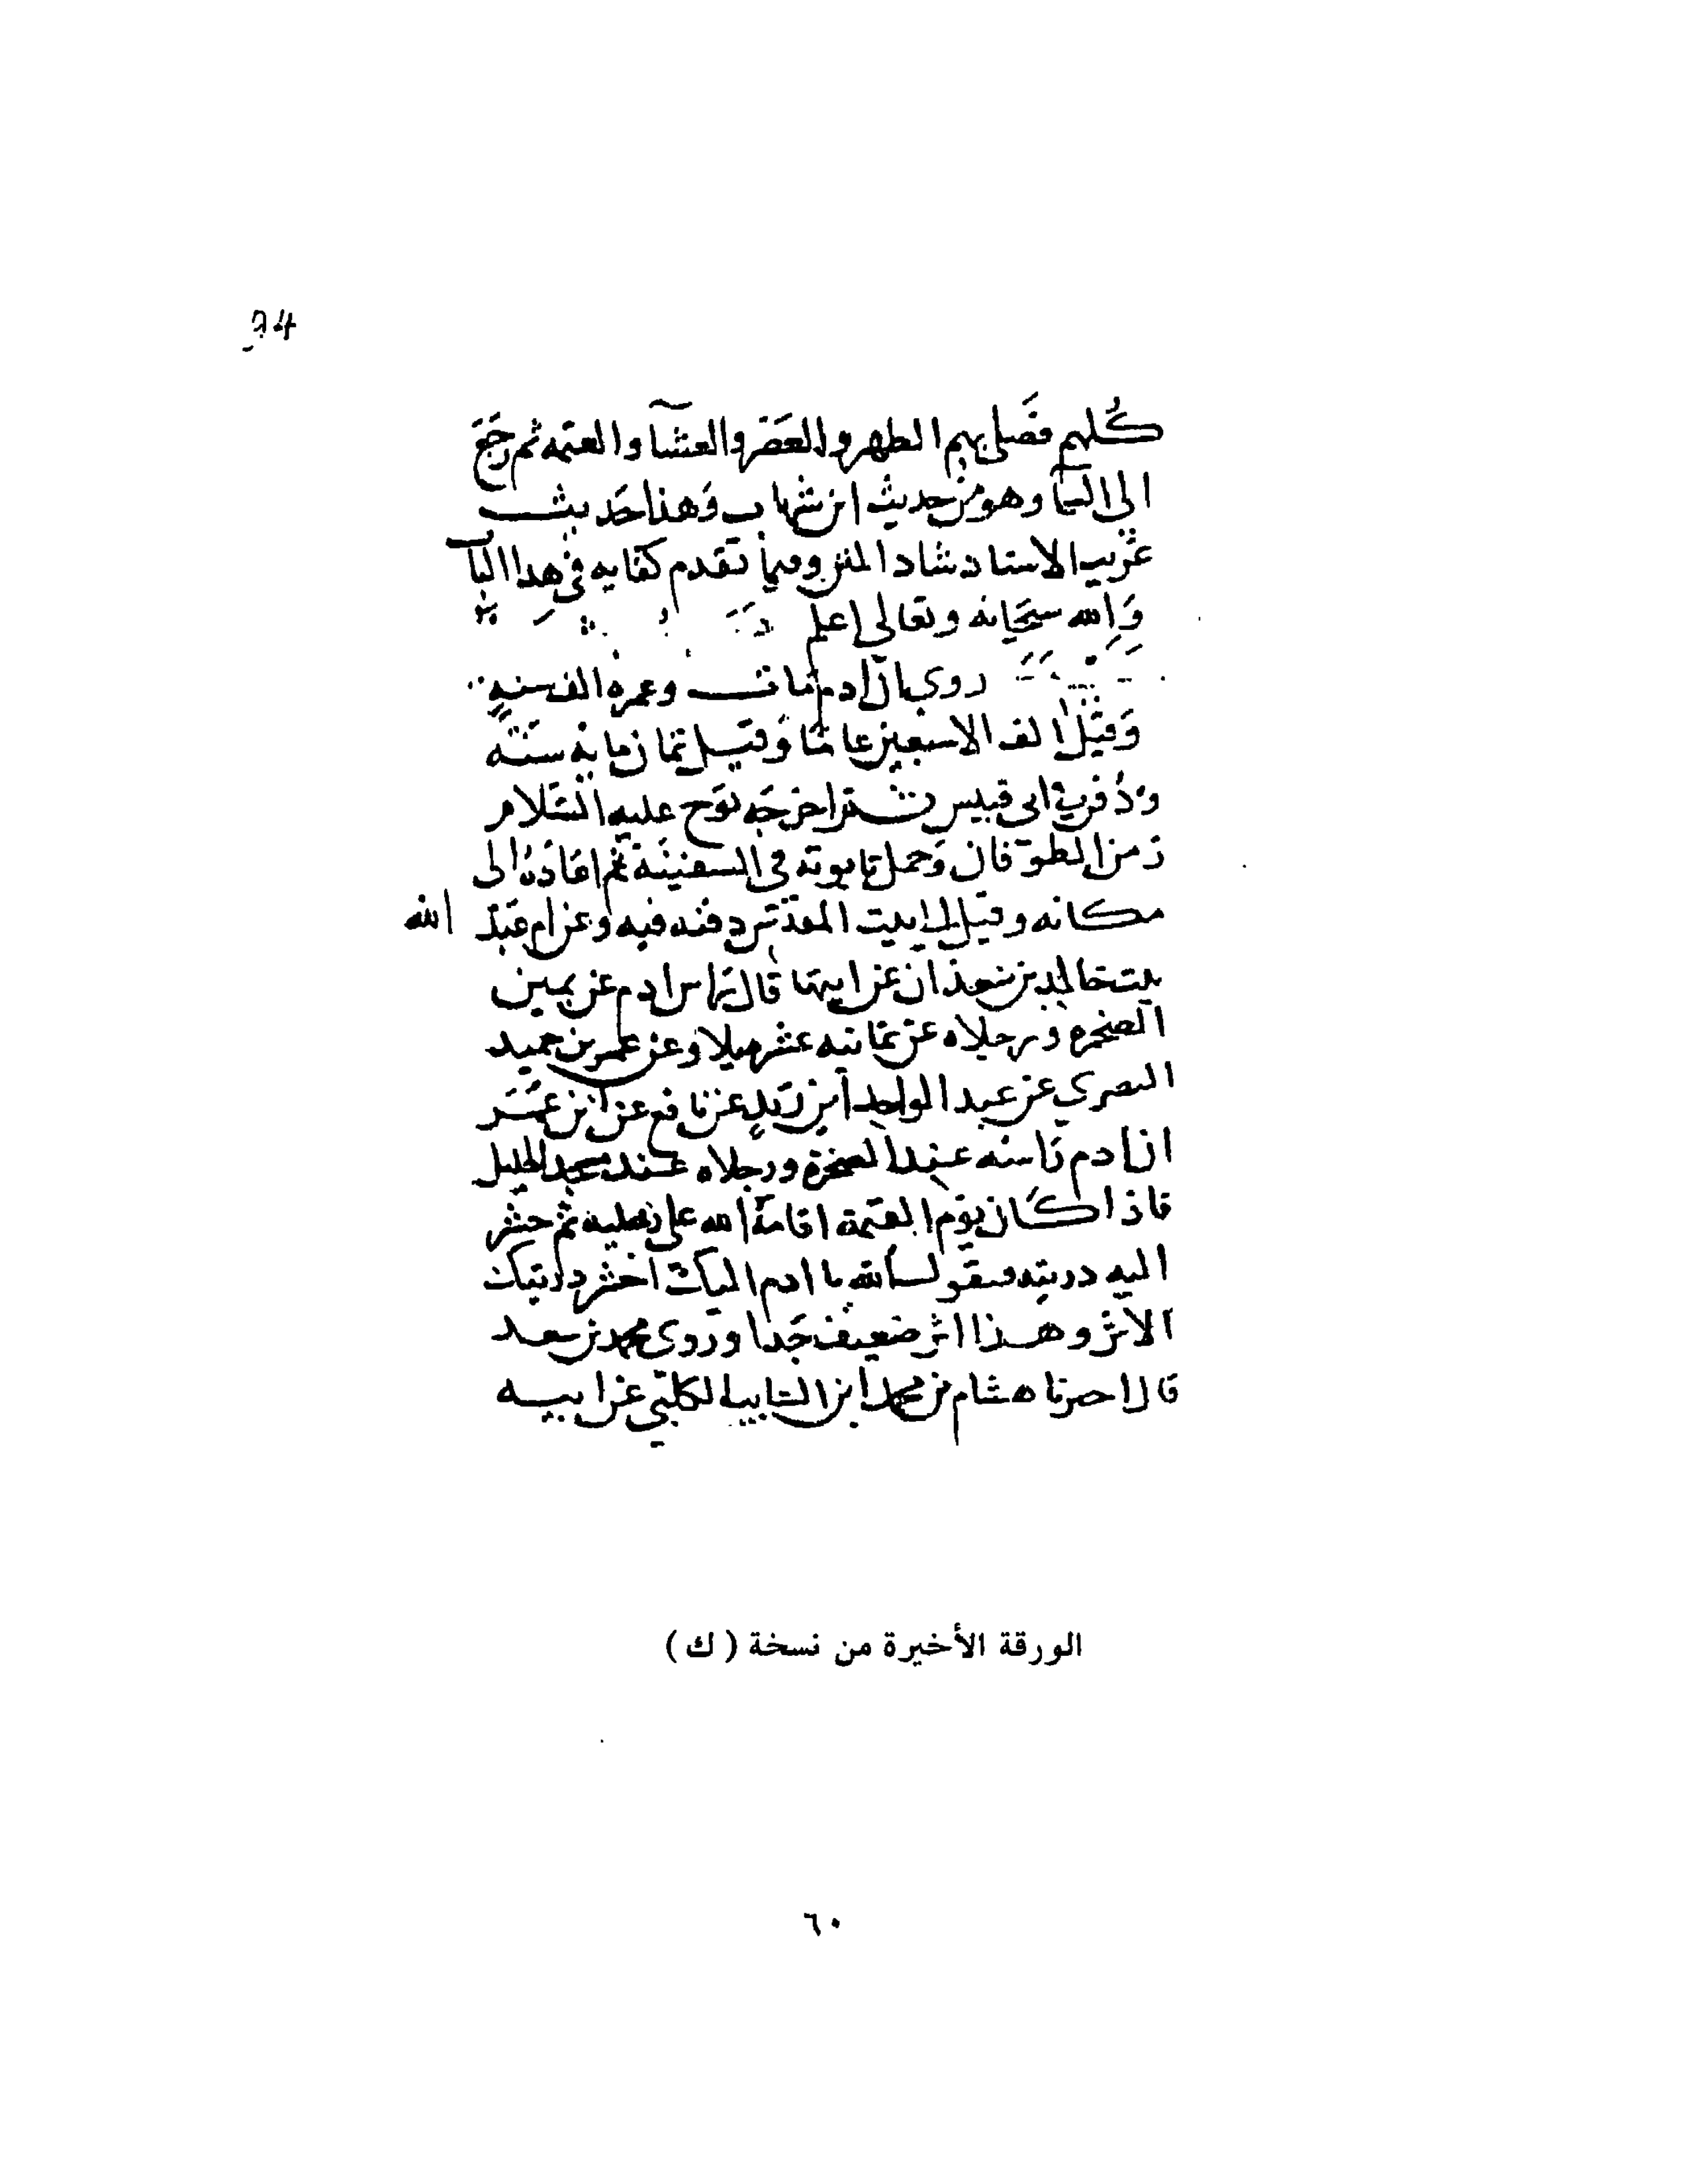 94
كُلهم فصَلى بهم الظهر والعَصر والعشآ والعتمه ثم رجَع
الى السمآ وهو من حديث ابن شهاب وَهذا حَديث
غريب الاسناد شاد المتن وفيما تقدم كفايه في هدا الباب
وَالله سبحَانه وتعالى اعلم
روي ان ادم مات وعمره الف سنه
وَقيل الف الا سبعين عامًا وَقيل ثمان مايه سنَه
ودُفن في ابي قبيس ثم اخرجَه نوح عليه السَلام
زمن الطوفان وَحمل تابوته في السفينَة ثم اعَادهُ الى
مكانه وقيل الى بيت المقدس دفنه فيه وعن ام عَبد الله
بنت خالد بن معدان عن ابيها قال راس ادم عن يمين
الصخره ورجلاه عن ثمانيه عشر ميلا وعن عمر بن حميد
البصري عن عبد الواحد ابن زيد عن نافع عن ابن عمر
ان ادم رَاسه عند الصخرة ورجلاه عند مسجد الخليل
فاذا كان يوم القيمة اقامهُ الله على رجليه ثم حشر
اليه دريته فيقول الله يا ادم اليك احشر دريتك
الاثر وهذا اثر ضعيف جَدا وروى محمد بن سعد
قال اخبرنا هشام بن محمد ابن السايب الكلبي عن ابيه
الورقة الأخيرة من نسخة ( ك )
٦٠